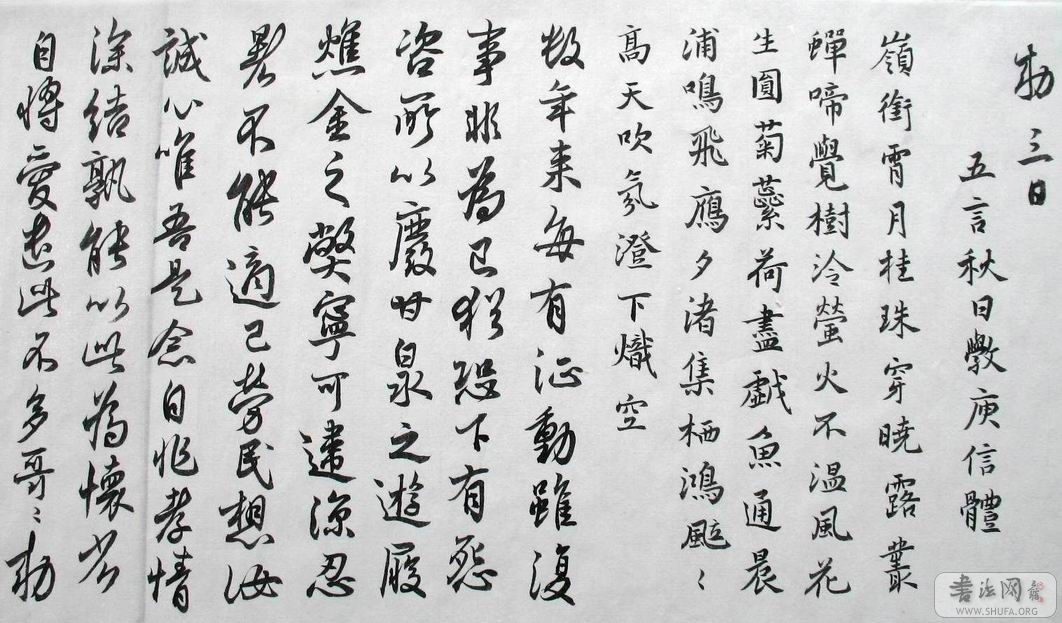 勑
三日
五言秋日斆庾信體
嶺銜宵月桂珠穿曉露叢
蟬啼覺樹冷螢火不温風花
生圓菊蘂荷盡戲魚通晨
浦鳴飛鴈夕渚集栖鴻颸〻
高天吹氛澄下熾空
數年来每有征動雖復
事非為己猶恐下有怨
咨所以廢甘泉之遊履
燋金之弊寧可違涼忍
暑不能適己勞民想汝
誠心唯吾是念自非孝情
深結孰能以此為懷省
自慱愛遣此不多哥〻勑
書法网
WWW.SHUFA.ORG